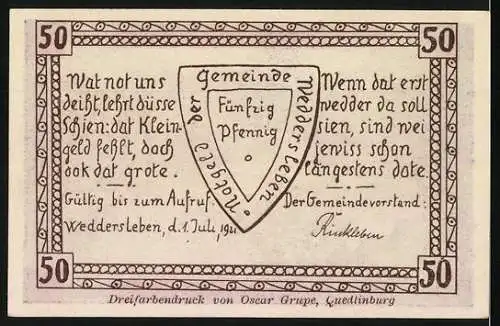 50
50
Wat not uns
deiht, lehrt düsse
Schien: dat Klein-
geld fehlt, doch
ook dat grote.
Gültig bis zum Aufruf.
Weddersleben, d. 1. Juli, 1921
Notgeld der Gemeinde Weddersleben
Fünfzig
Pfennig
Wenn dat erst
wedder da soll
sien, sind wei
jewiss schon
längestens dote.
Der Gemeindevorstand:
Rinkleben
50
50
Dreifarbendruck von Oscar Grupe, Quedlinburg